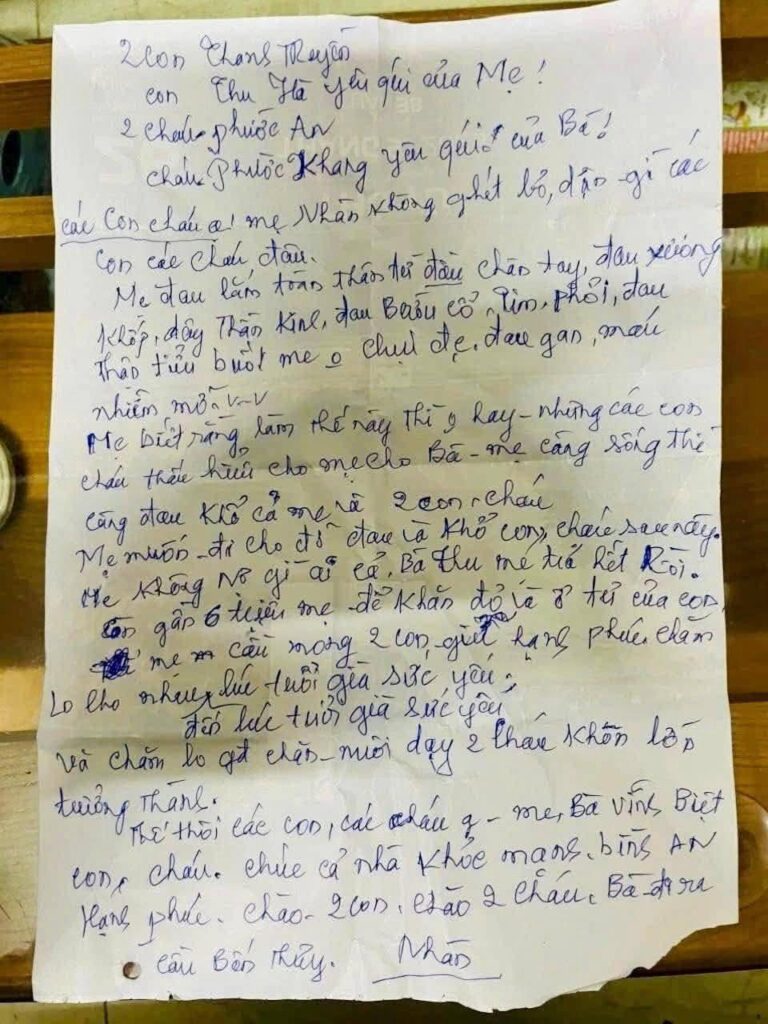 2 con Thanh Truyền
con Thu Hà yêu quí của Mẹ!
2 cháu phước AN
cháu Phước Khang yêu quí của Bà!
các con cháu ạ! mẹ Nhàn không ghét bỏ, dận gì các
con các cháu đâu.
Mẹ đau lắm toàn thân từ đầu chân tay, đau xương
khớp, dây Thần kinh, đau Bướu cổ, Tim, phổi, đau
thận tiểu buốt mẹ o chịu đc, đau gan, máu
nhiễm mỡ v-v
Mẹ biết rằng làm thế này thì o hay - nhưng các con
cháu thấu hiểu cho mẹ cho Bà - mẹ càng sống thì
càng đau khổ cả mẹ và 2 con, cháu
Mẹ muốn đi cho đỡ đau và khổ con, cháu sau này.
Mẹ không nợ gì ai cả, Bà Thu mẹ trả hết Rồi.
còn gần 6 triệu mẹ để khăn đỏ và ở tủ của con,
mẹ cầu mong 2 con giữ hạnh phúc chăm
lo cho nhau lúc tuổi già sức yếu.
đến lúc tuổi già sức yếu
và chăm lo gđ chăn nuôi dạy 2 cháu khôn lớn
trưởng Thành.
Thế thôi các con, các cháu ạ - mẹ, Bà vĩnh Biệt
con, cháu. chúc cả nhà khỏe mạnh, bình AN
Hạnh phúc. chào 2 con, chào 2 cháu, Bà đi ra
cầu Bến Thủy. Nhàn